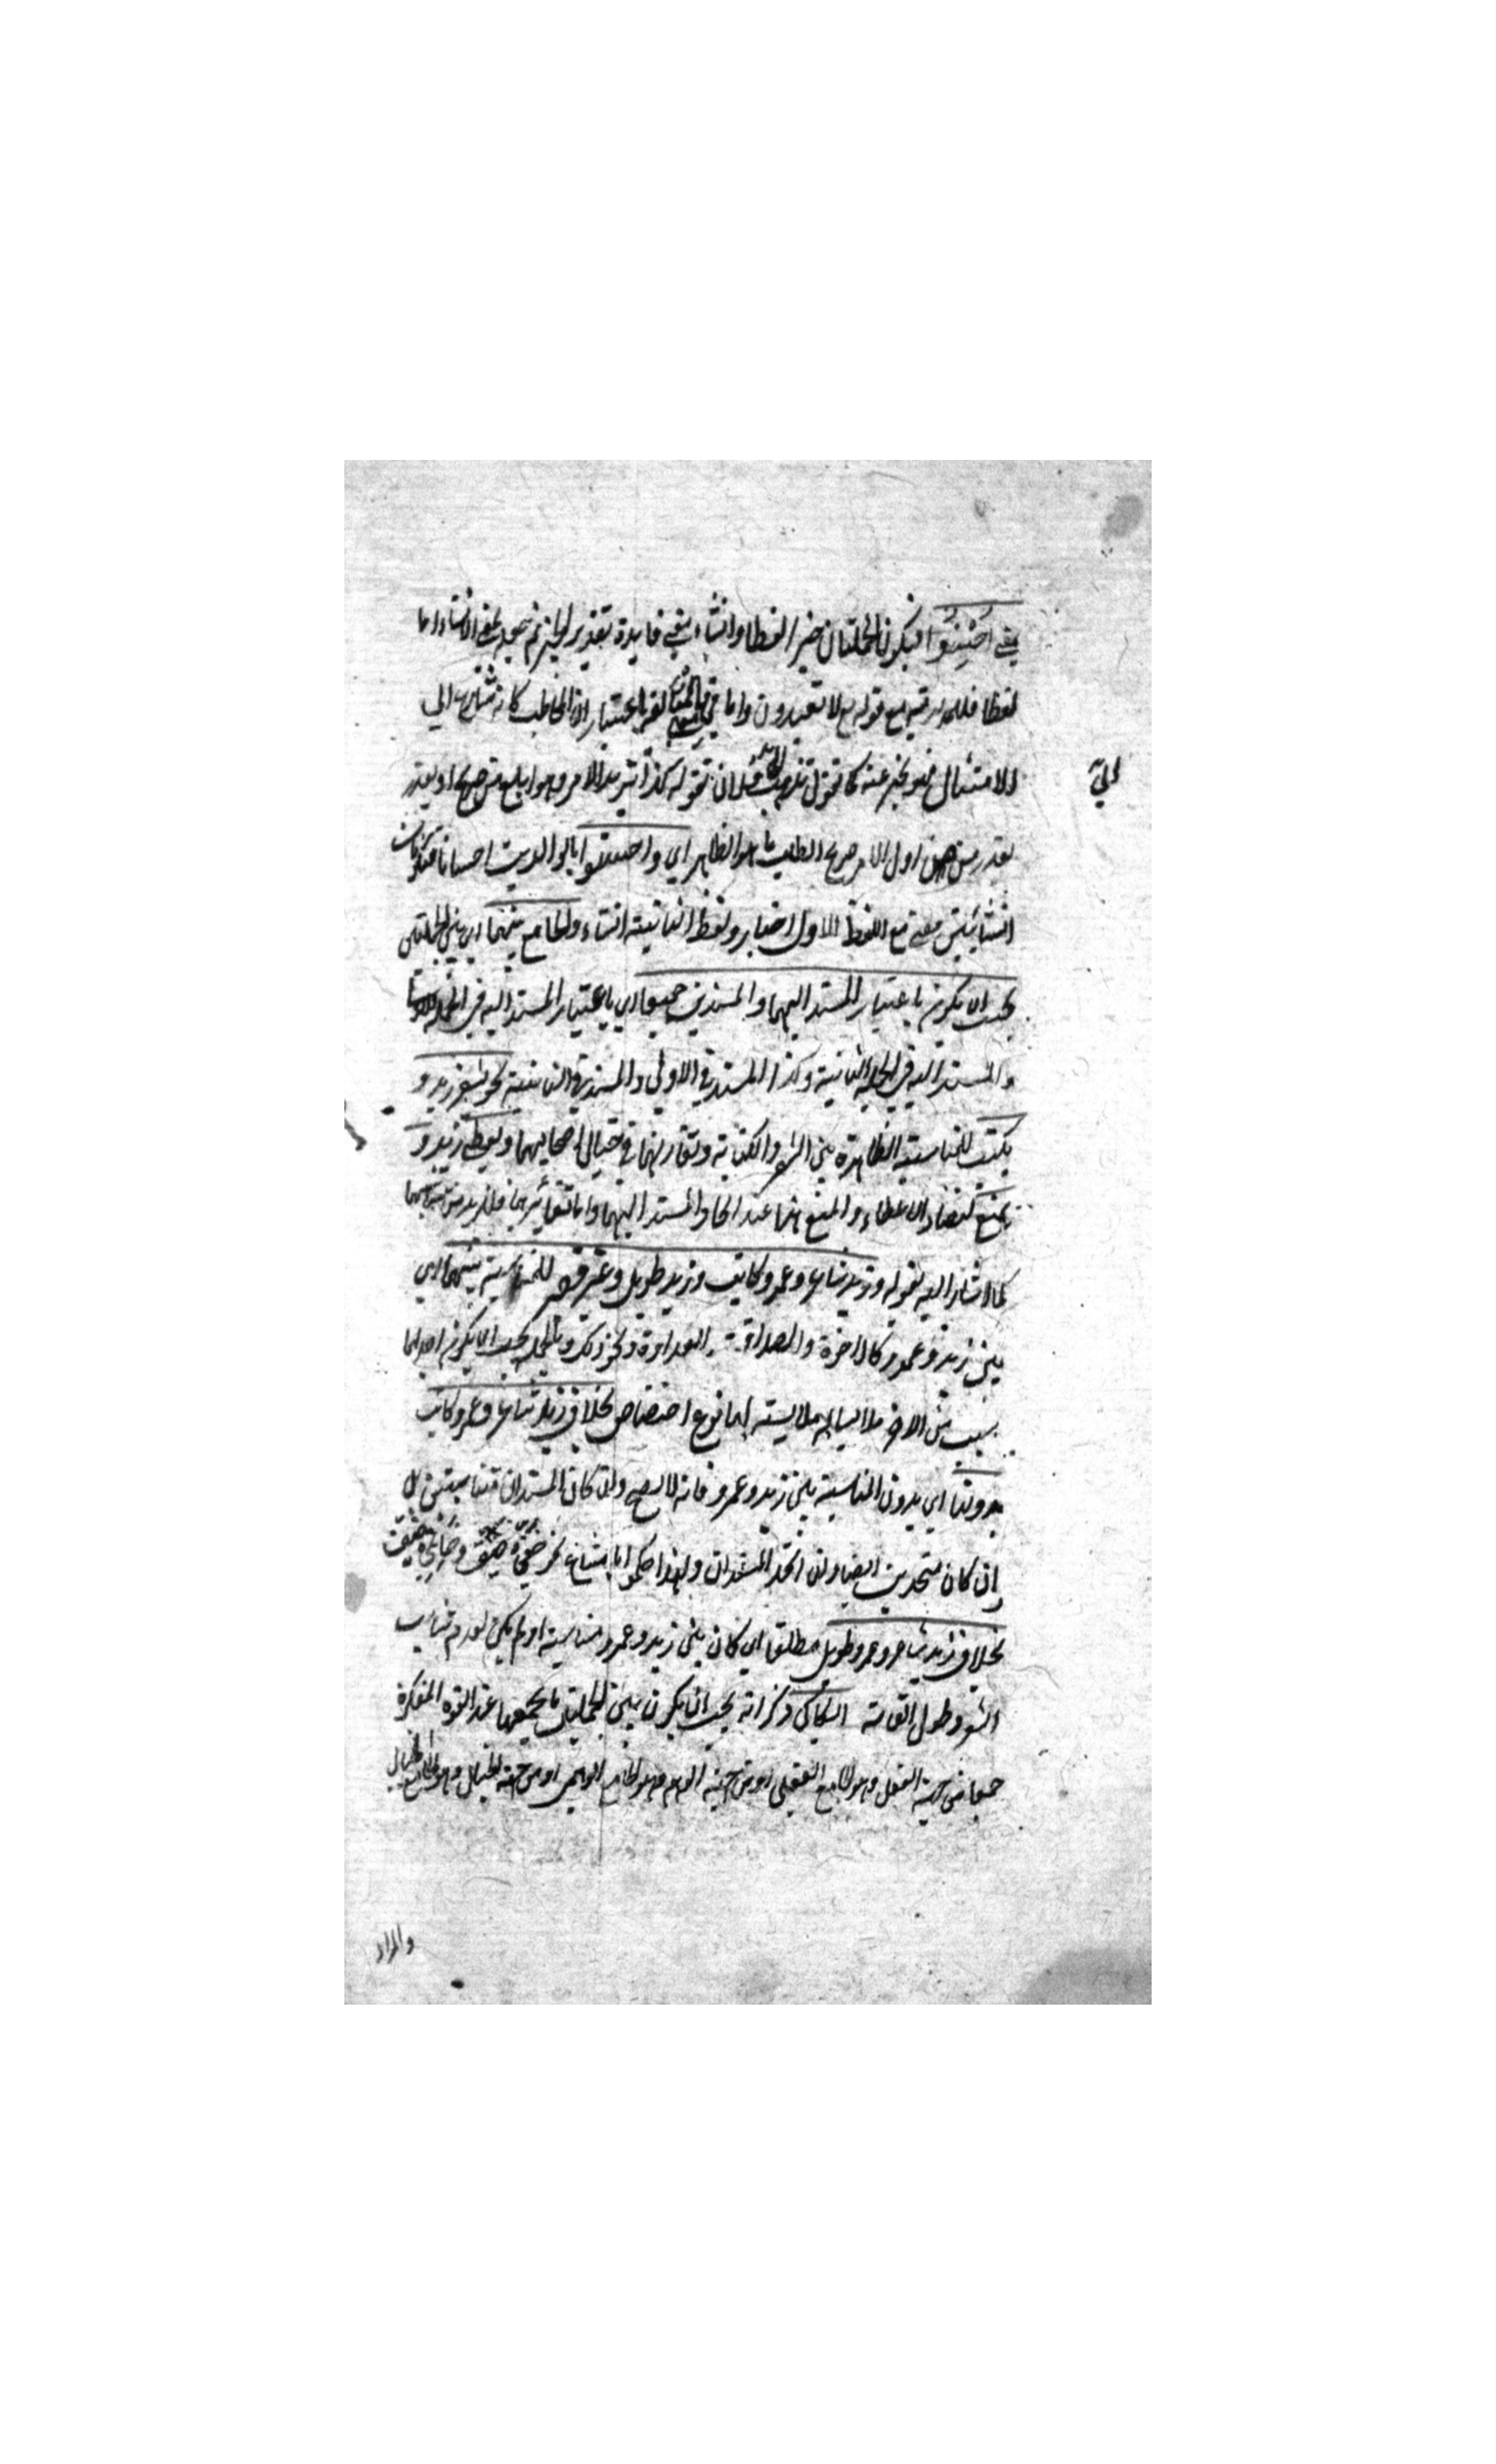 بمعنى أحسنوا فيكون الجملتان خبرا لفظا وانشاء معنى فايدة تقدير الخبر ثم جعله بمعنى الانشاء اما
لفظا فللملايمة مع قوله مع لا تعبدون واما معنى فالمبالغة باعتبار ان المخاطب كانه سارع الى
الامتثال فهو يخبر عنه كما تقول تذهب الى فلان تقول له كذا تريد الامر وهو ابلغ من صريح او يقدر
يقدر من اول الامر صريح الطلب ما هو الظاهر اي واحسنوا بالوالدين احسانا فتكونان
انشائيتين معنى مع لفظ الاول اخبار ولفظ الثانية انشاء والجامع بينهما اي بين الجملتين
يجب ان يكون باعتبار المسند اليهما والمسندين جميعا اي باعتبار المسند اليه في الجملة الاولى
والمسند اليه في الجملة الثانية وكذا المسند في الاولى والمسند في الثانية نحو يشعر زيد و
يكتب للمناسبة الظاهرة بين الشعر والكتابة وتقارنهما في خيال اصحابهما ويعطي زيد و
يمنع لتضاد الاعطاء والمنع هذا عند اتحاد المسند اليهما واما تغايرهما فلا بد من تناسبهما
كما اشار اليه بقوله وزيد شاعر وعمرو كاتب وزيد طويل وعمرو قصير للمناسبة بينهما اي
بين زيد وعمرو كالاخوة والصداقة والعداوة ونحو ذلك وبالجملة يجب ان يكون احدهما
بسبب من الاخر ملابسا له ملابسة لها نوع اختصاص بخلاف زيد شاعر وعمرو كاتب
بدونها اي بدون المناسبة بين زيد وعمرو فانه لا يصح وان كان المسندان متناسبين بل
وان كان متحدين ايضا وان اتحد المسندان ولهذا حكموا بامتناع نحو خفي ضيق وخاتمي ضيق
بخلاف زيد شاعر وعمرو طويل مطلقا اي كان بين زيد وعمرو مناسبة او لم يكن لعدم تناسب
الشعر وطول القامة السكاكي ذكر انه يجب ان يكون بين الجملتين ما يجمعهما عند القوة المفكرة
جمعا من جهة العقل وهو الجامع العقلي او من جهة الوهم وهو الجامع الوهمي او من جهة الخيال وهو الجامع الخيالي
والمراد